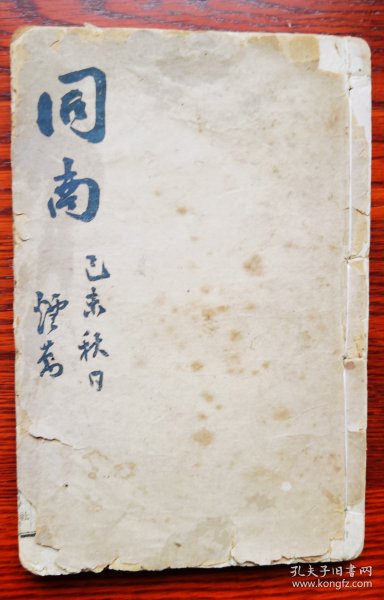 同南
己未秋日
煙
孔夫子旧书网
www.kongfz.com